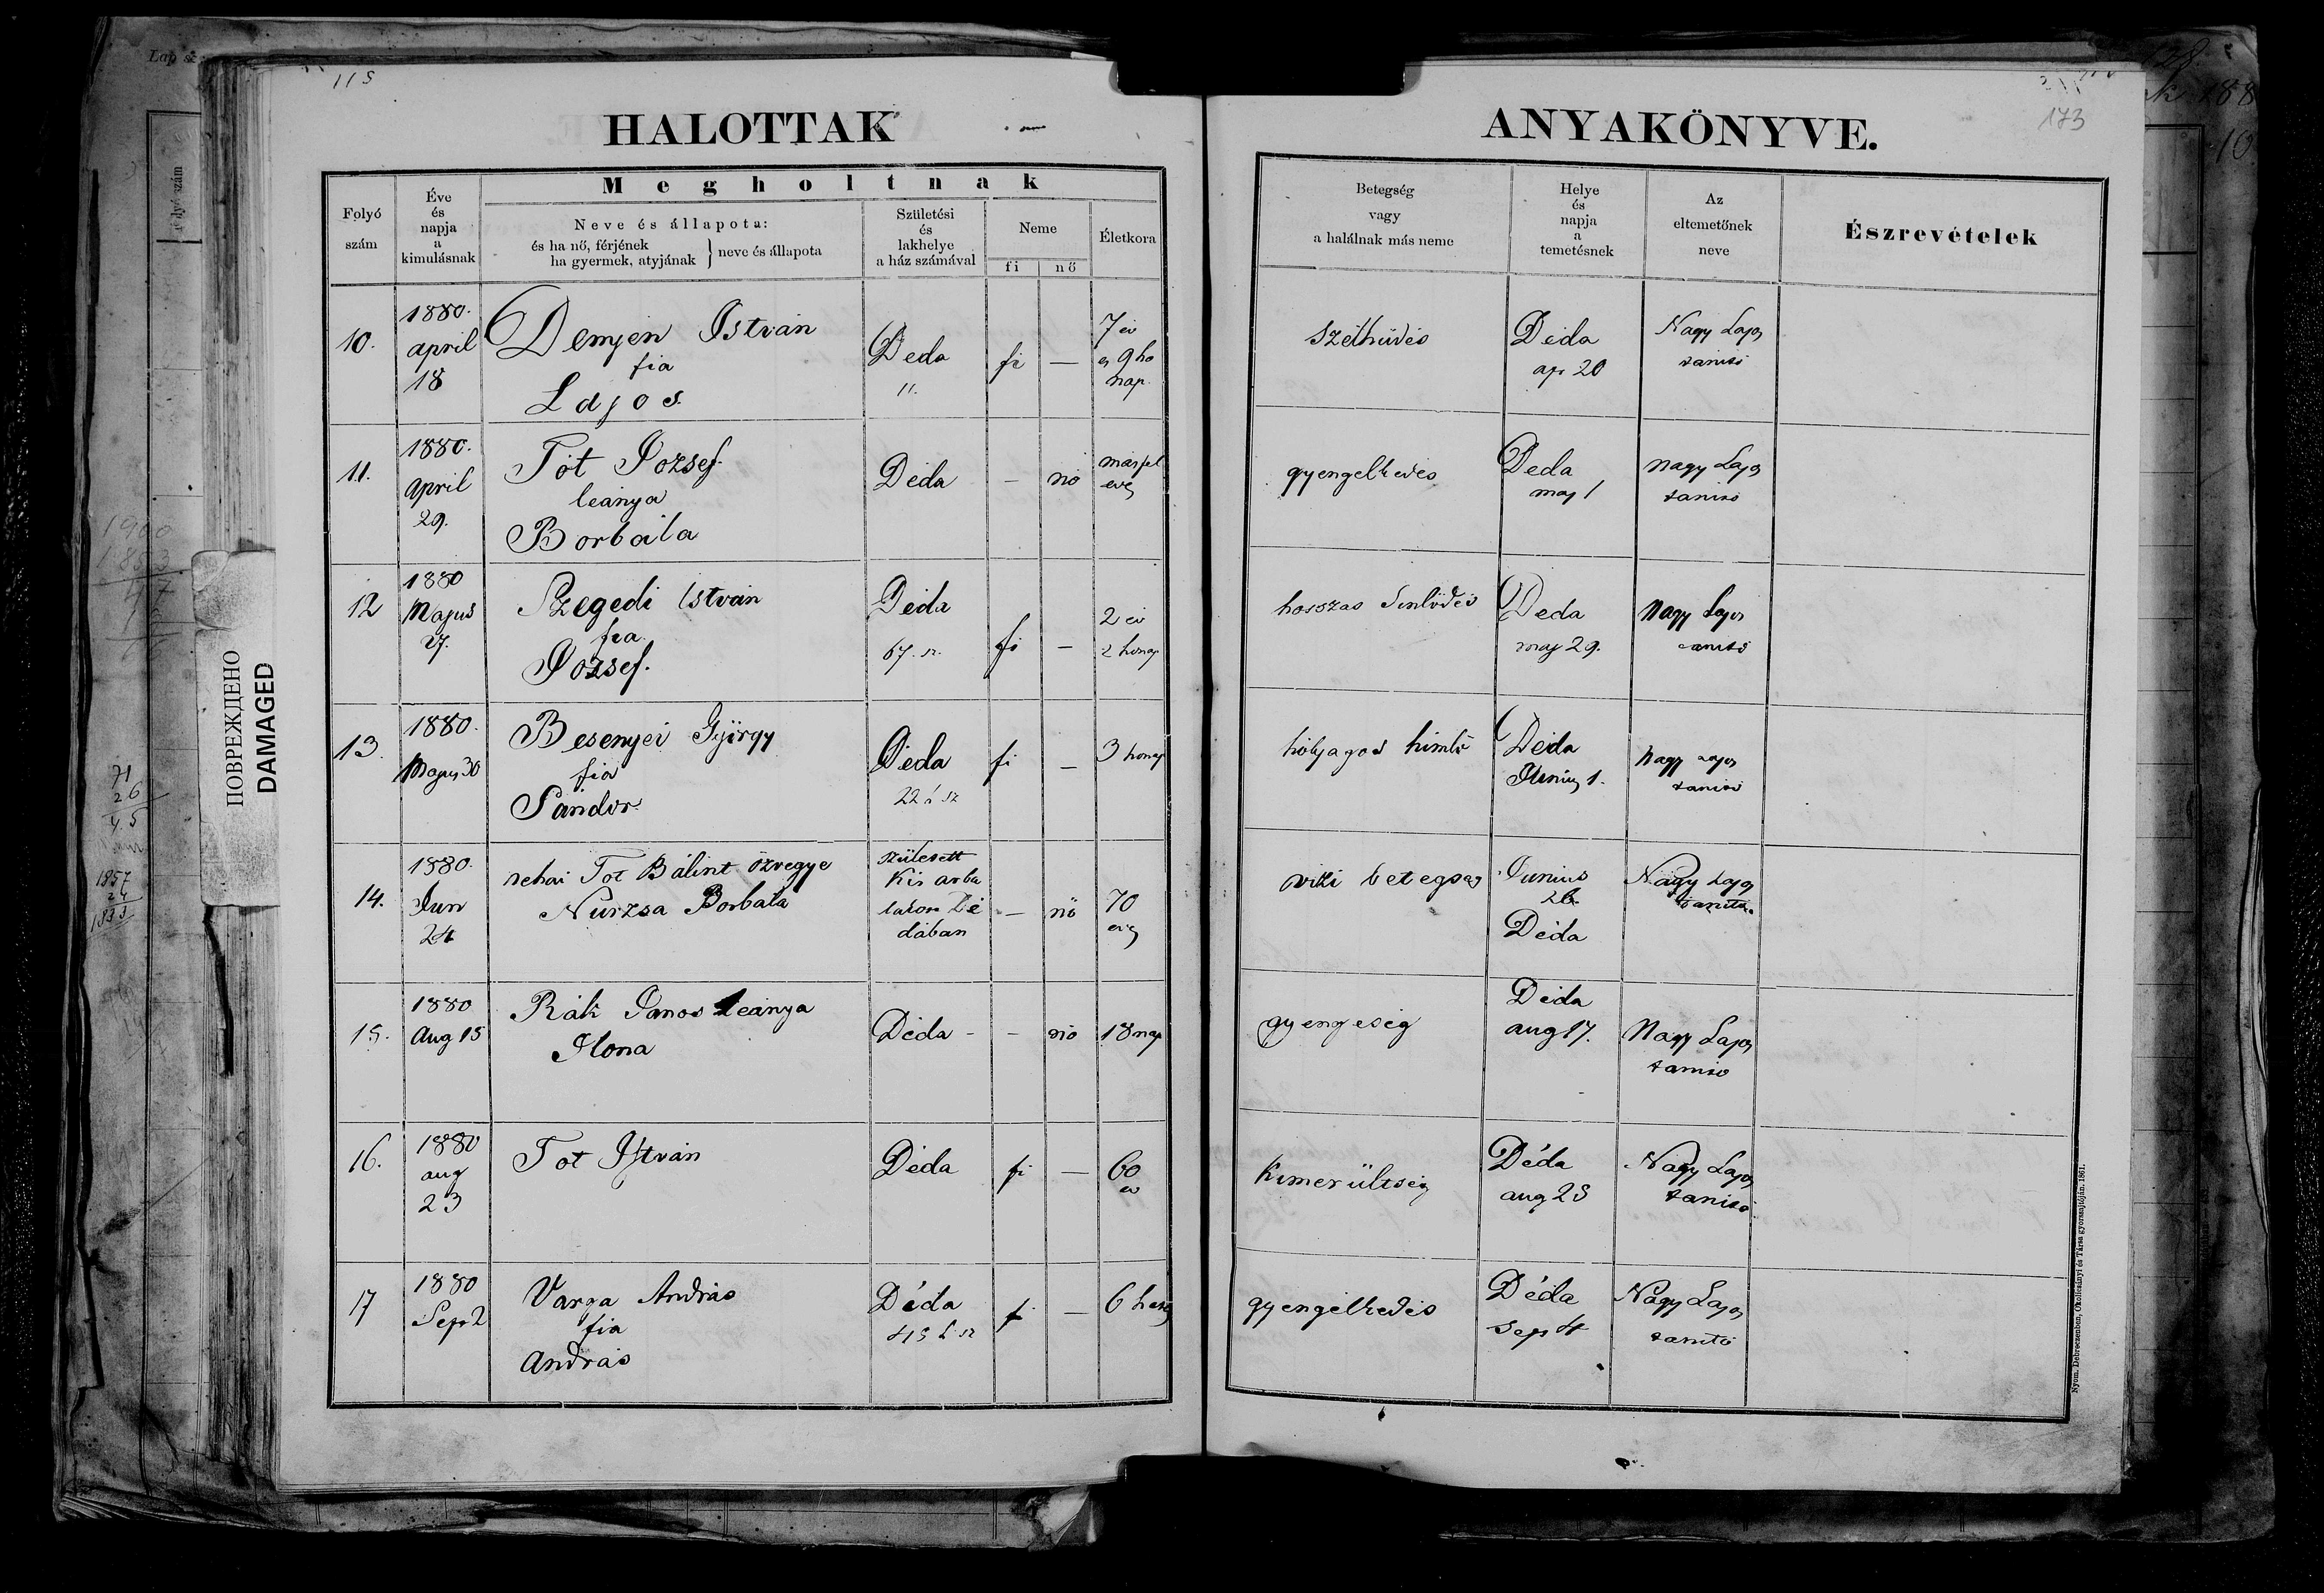 115
HALOTTAK
ANYAKÖNYVE.
173
Folyó szám
Éve és napja a kimulásnak
Megholtnak
Neve és állapota:
és ha nő, férjének
ha gyermek, atyjának } neve és állapota
Születési és lakhelye a ház számával
Neme
fi nő
Életkora
Betegség vagy a halálnak más neme
Helye és napja a temetésnek
Az eltemetőnek neve
Észrevételek
10. 1880. april 18 Demjén István fia Lajos. Déda ". fi — 7 év és 9 hó nap. Széthüdés Déda ap 20 Nagy Lajos tanitó
11. 1880. april 29. Tót Jozsef leánya Borbála Déda - nő másfel éves gyengelkedés Déda maj 1 Nagy Lajos tanitó
12 1880 Majus 27. Szegedi István fia Jozsef. Déda 67. sz. fi - 2 év 2 honap hosszas Déda maj 29. Nagy Lajos tanitó
13. 1880. Majus 30 Besenyei György fia Sándor. Déda 22 h sz fi - 3 honap hólyagos himlő Déda Junius 1. Nagy Lajos tanitó
14. 1880. Jun 24 néhai Tot Bálint özvegye Nurzsa Borbála született Kis arba lakos Dé dában - nő 70 éves vizi betegség Junius 26. Déda Nagy Lajos tanitó.
15. 1880 Aug 15 Rák Janos leánya Ilona Déda - - nő 18 nap gyengeség Déda aug 17. Nagy Lajos tanitó
16. 1880 aug 23 Tot István Déda fi — 60 év Kimerültség Déda aug 25 Nagy Lajos tanitó
17 1880 Sep 2 Varga András fia András Déda 45 h sz f — 6 hetes gyengélkedés Déda sep 4 Nagy Lajos tanitó
Nyom. Debreczenben, Okolicsányi és Társa gyorssajtóján. 1861.
ПОВРЕЖДЕНО
DAMAGED
Lap sz
1900
71
26
45
1857
24
1833
128
188
10